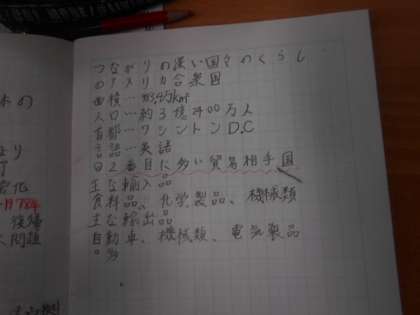 つながりの深い国々のくらし
のアメリカ合衆国
面積…
人口…約3億2400万人
首都…ワシントンD.C
言語…英語
日2番目に多い貿易相手国
主な輸入品
食料品、化学製品、機械類
主な輸出品
自動車、機械類、電気製品
の
化
後帰
問題